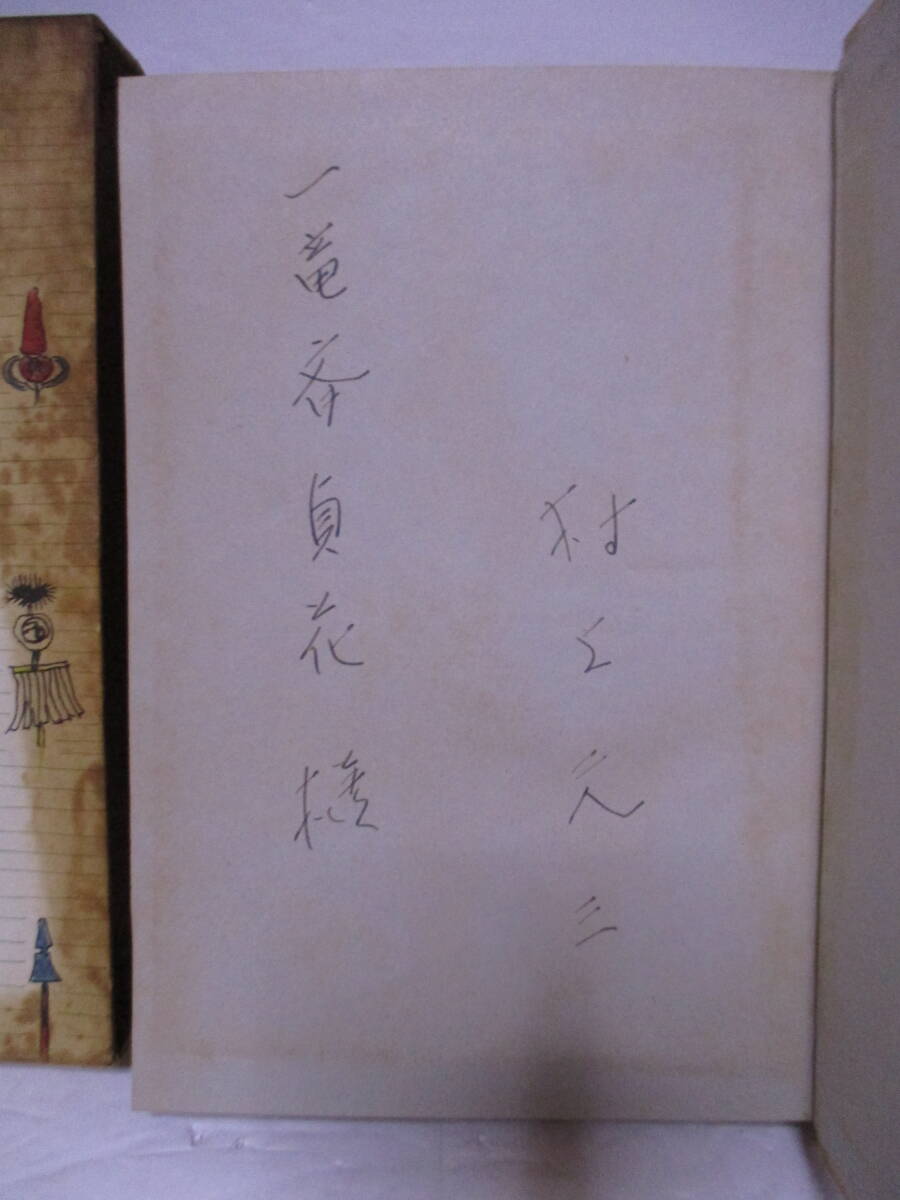 村上元三
一竜斎貞花様